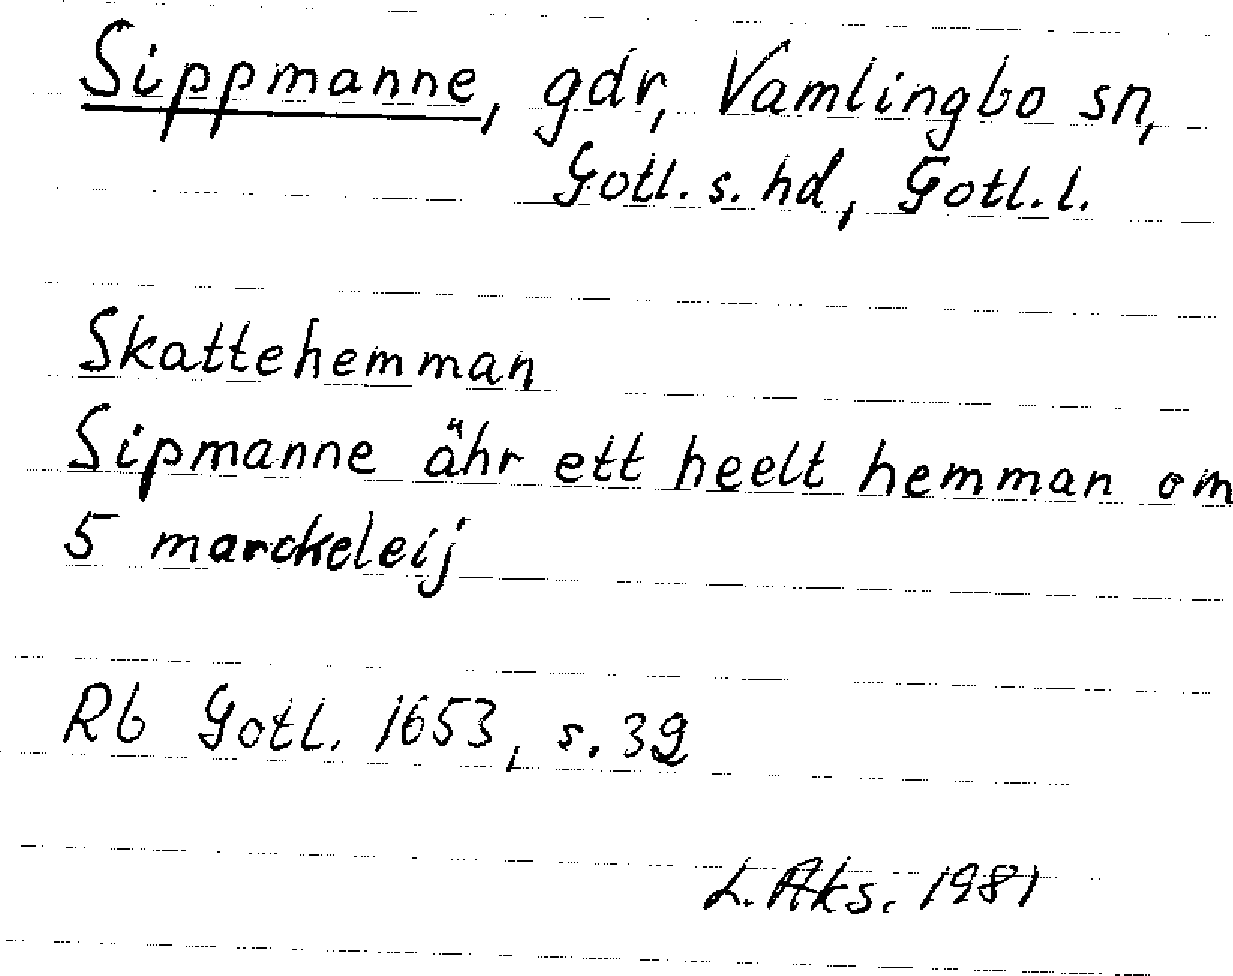 Sippmanne, gdr, Vamlingbo sn,
Gotl. s. hd, Gotl. l.
Skattehemman
Sipmanne ähr ett heelt hemman om
5 marckeleij
Rb Gotl. 1653, s. 39
L. Aks. 1981